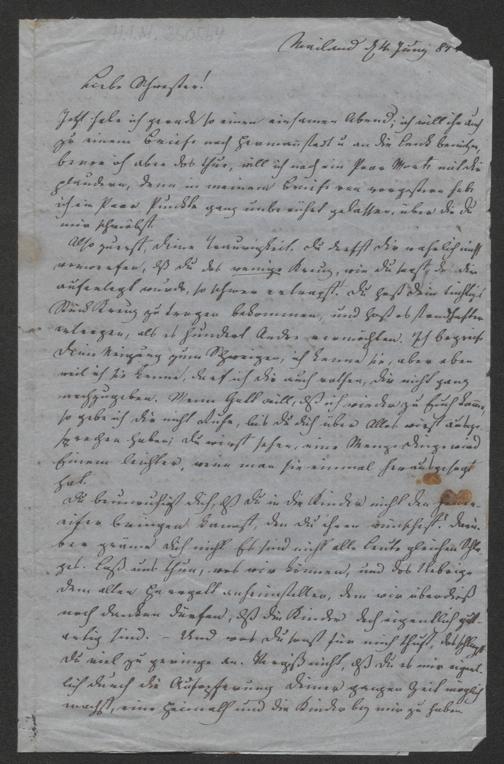 H.I.N. 250564
Mailand d 4. Juny 85
Liebe Schwester!
Jetzt habe ich gerade so einen einsamen Abend; ich will ihn auch
zu einem Briefe nach Hermannstadt u an die benützen,
bevor ich aber das thue, will ich noch ein Paar Worte mit dir
plaudern, denn in meinem Briefe von vorgestern habe
ich ein Paar Punkte ganz unberührt gelassen, über die du
mir schreibst.
Also zuerst, deine Traurigkeit. Du darfst dir wahrlich nicht
vorwerfen, daß du das wenige Kreuz, wie du sagst, so dir
auferlegt wurde, so schwer erträgst. Du hast dein tüchtiges
Stück Kreuz zu tragen bekommen, und hast es standhafter
ertragen, als es hundert Andre vermochten. Ich begreife
deine Neigung zum Schweigen, ich kenne sie, aber eben
weil ich sie kenne, darf ich dir auch rathen, dir nicht ganz
nachzugeben. Wenn Gott will, daß ich wieder zu Euch komme,
so gebe ich dir nicht Ruhe, bis du dich über Alles wirst ausge-
sprochen haben; du wirst sehen, eine Menge Dinge wird
Einem leichter, wenn man sie einmal herausgesagt
hat.
Du beunruhigst dich, daß du in die Kinder nicht den
eifer bringen kannst, den du ihnen wünschest? Darü-
ber gräme dich nicht. Es sind nicht alle Leute gleichen Schla-
ges. Laß uns thun, was wir können, und das Uebrige
dem alten Herrgott anheimstellen, dem wir überdieß
noch danken dürfen, daß die Kinder doch eigentlich gut-
artig sind. – Und was du sonst für mich thust, das schlägst
du viel zu geringe an. Vergiß nicht, daß du es mir eigent-
lich durch die Aufopferung deiner ganzen Zeit möglich
machst, eine Heimath und die Kinder bey mir zu haben